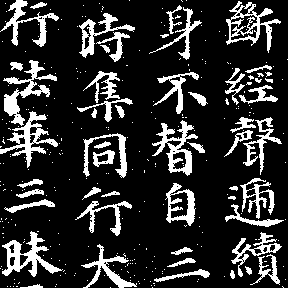 斷經聲遞續
身不替自三
時集同行大
行法華三昧